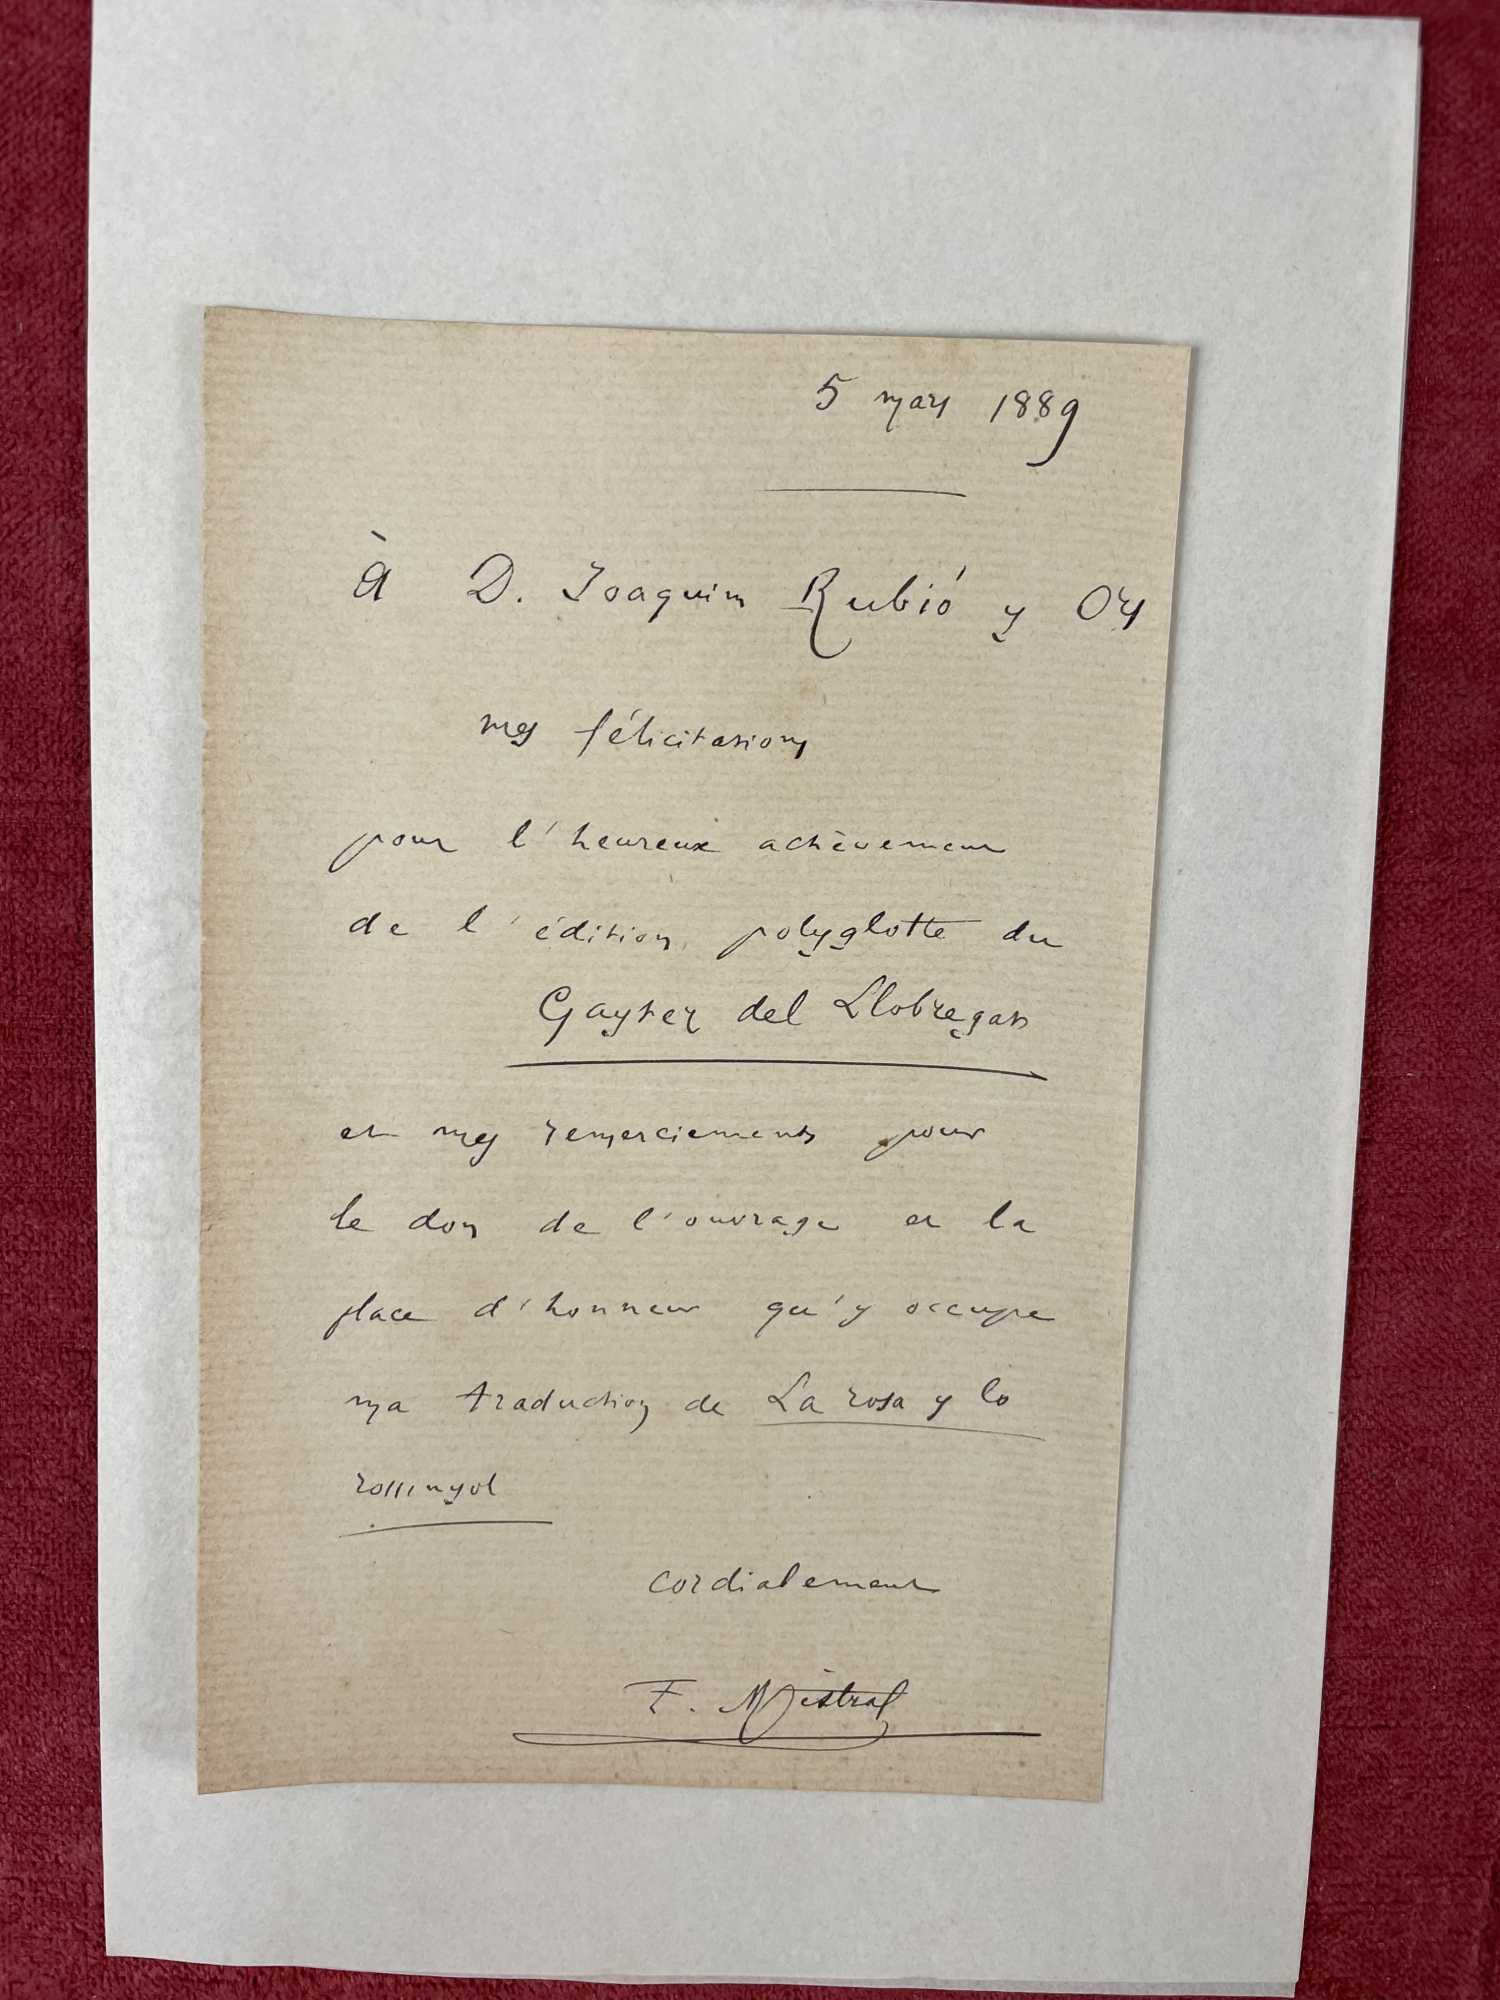 5 mars 1889
à D. Joaquim Rubió y Ors
mes félicitations
pour l'heureux achèvement
de l'édition polyglotte du
Gayter del Llobregat
et mes remerciements pour
le don de l'ouvrage et la
place d'honneur qu'y occupe
ma traduction de La rosa y lo
rossinyol
cordialement
F. Mistral